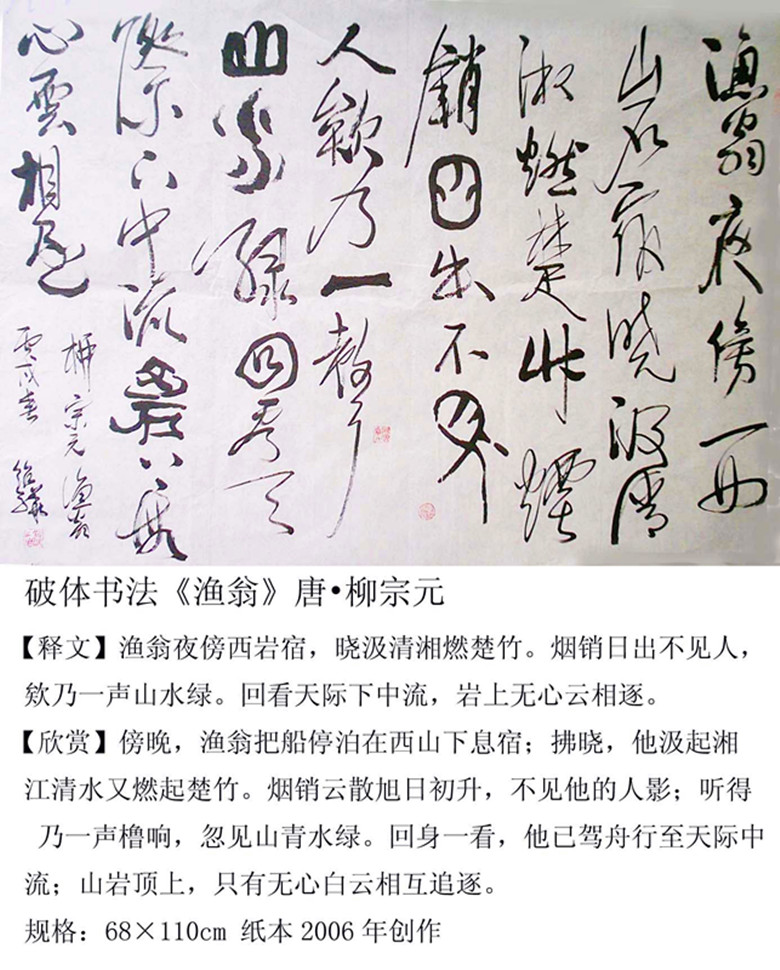 漁翁夜傍西
岩宿晓汲清
湘燃楚竹煙
銷日出不見
人欸乃一聲
山水綠回看天
際下中流巖上無
心雲相逐
柳宗元漁翁
丙戌春
破体书法《渔翁》唐•柳宗元
【释文】渔翁夜傍西岩宿，晓汲清湘燃楚竹。烟销日出不见人，
欸乃一声山水绿。回看天际下中流，岩上无心云相逐。
【欣赏】傍晚，渔翁把船停泊在西山下息宿；拂晓，他汲起湘
江清水又燃起楚竹。烟销云散旭日初升，不见他的人影；听得
乃一声橹响，忽见山青水绿。回身一看，他已驾舟行至天际中
流；山岩顶上，只有无心白云相互追逐。
规格：68×110cm 纸本 2006 年创作